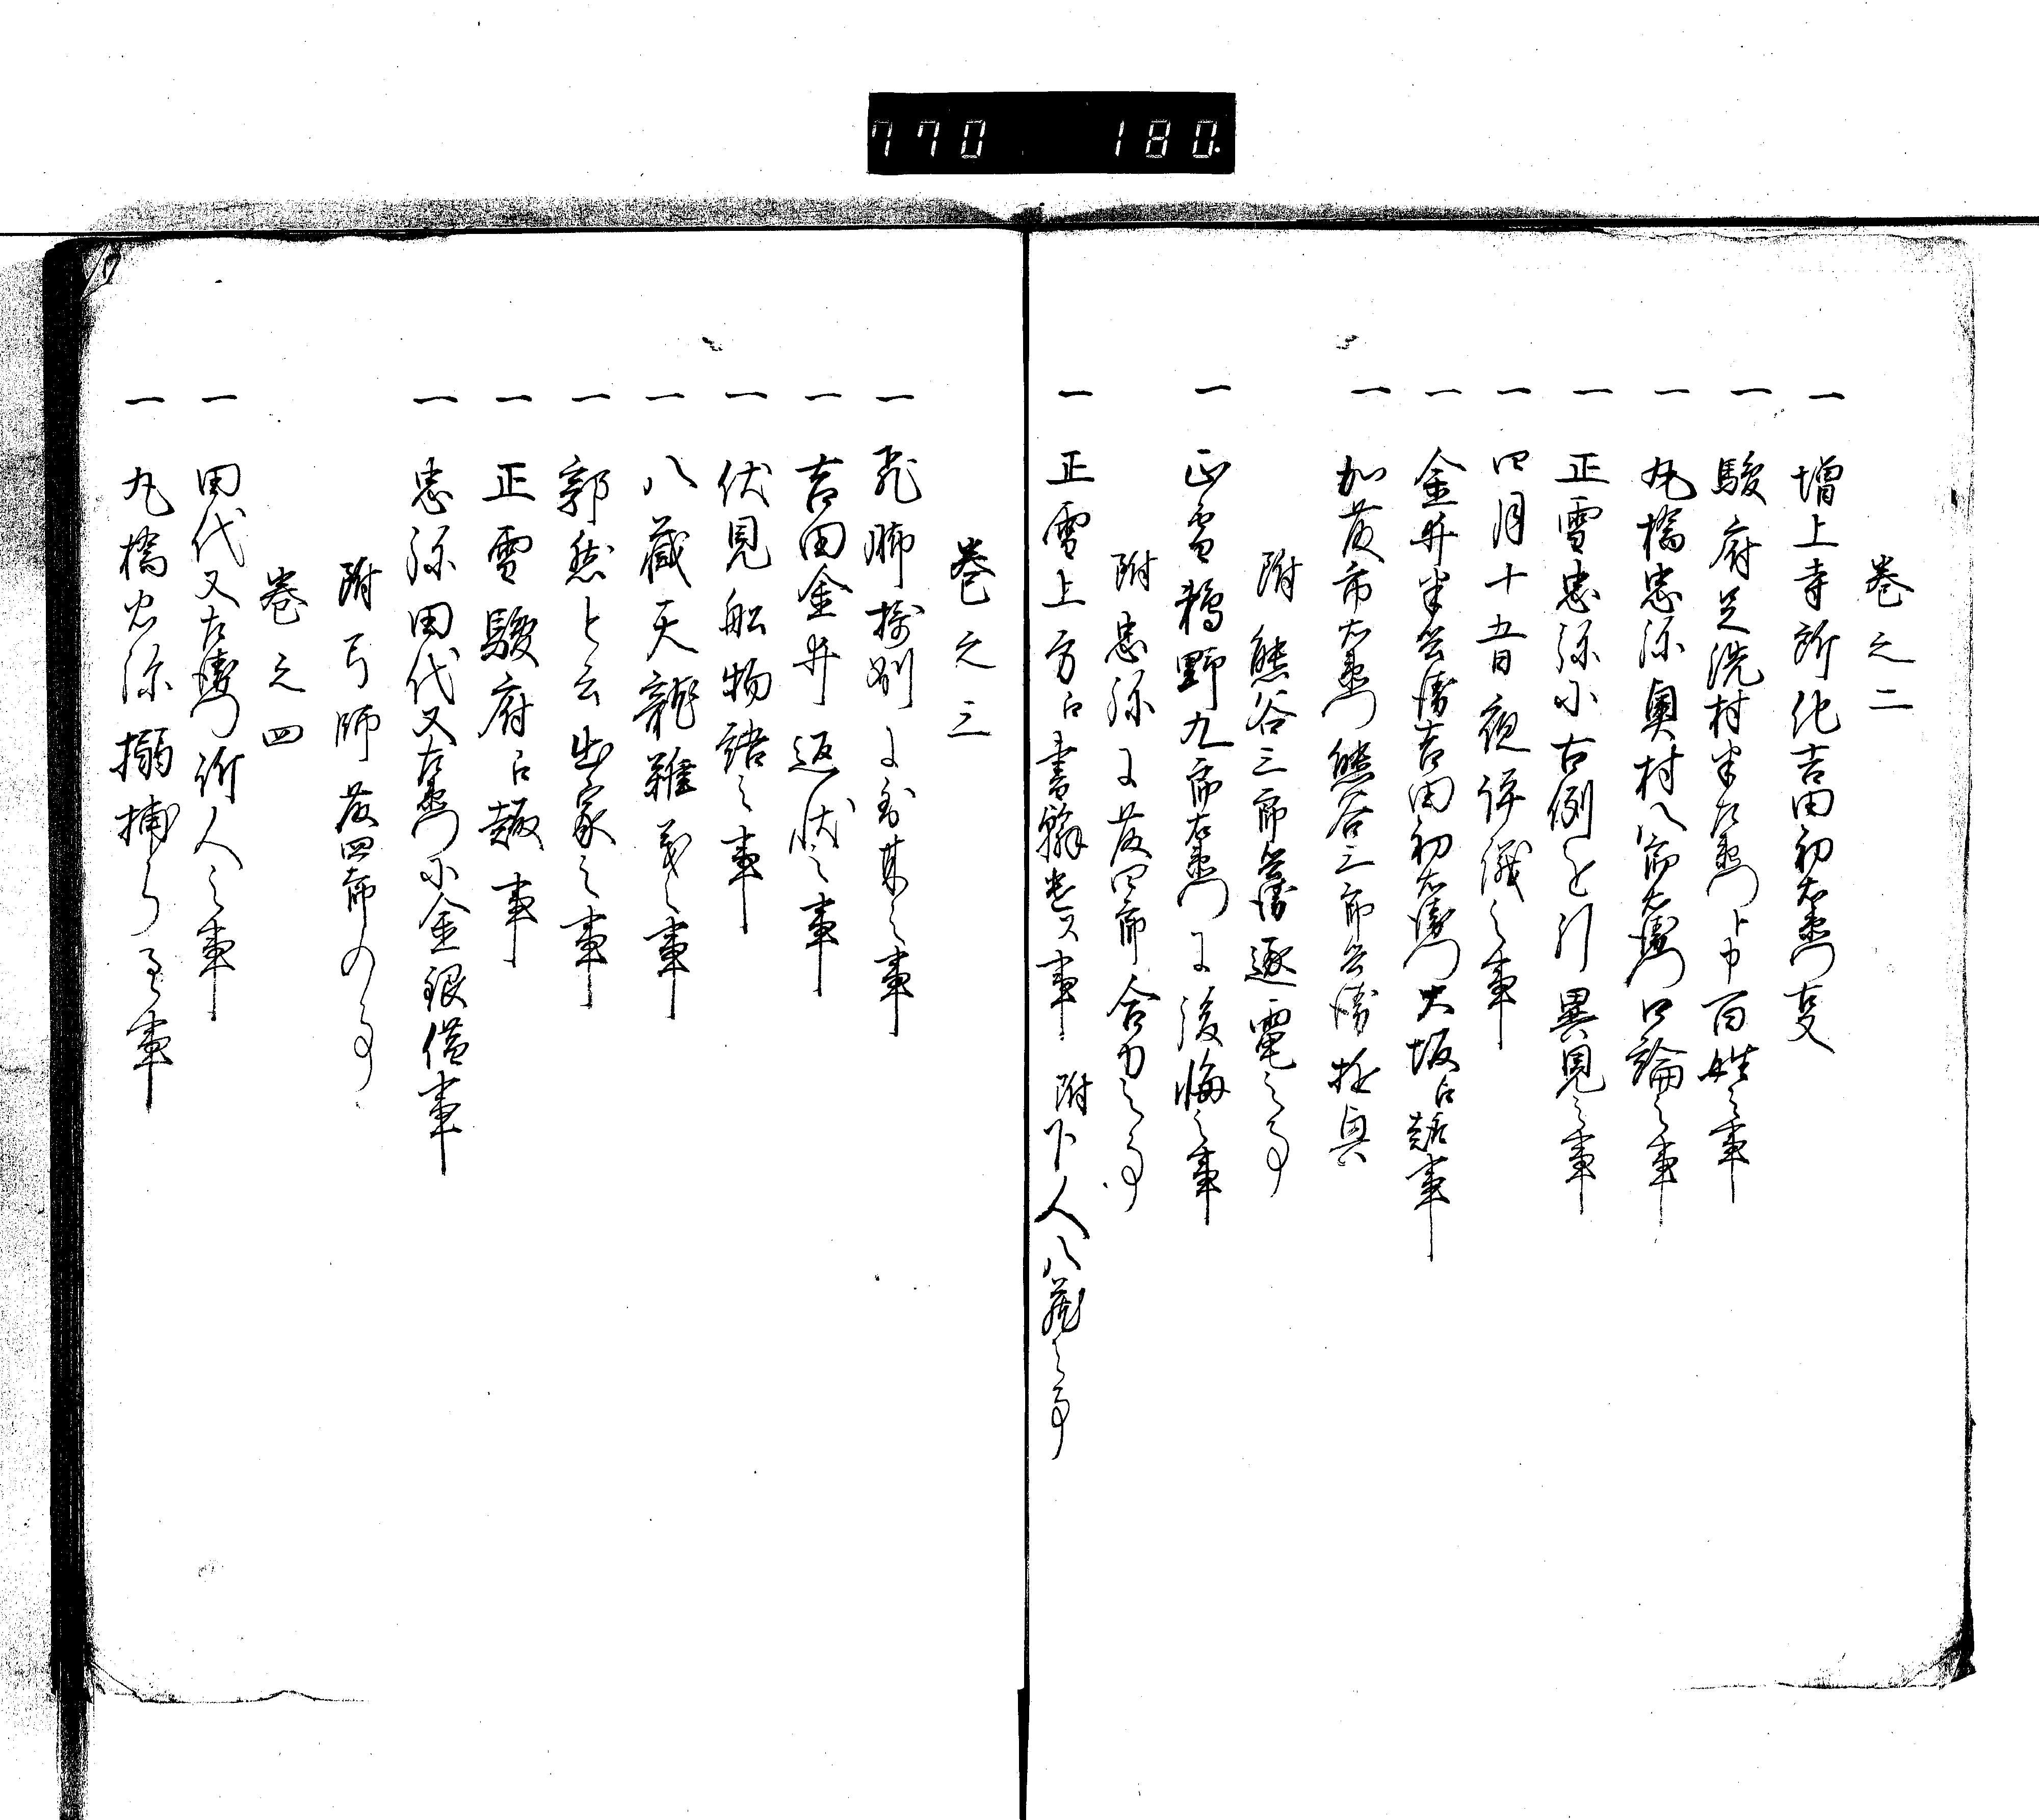 770 180.
巻之二
一 増上寺所化吉田初右衛門事
一 駿府足洗村半左衛門ト申百姓之事
一 丸橋忠弥奥村八郎右衛門口論之事
一 正雪忠弥ニ古例を引異見之事
一 四月十五日夜評儀之事
一 金井半兵衛吉田初右衛門大坂江趣事
一 加藤市右衛門熊谷三郎兵衛
附 熊谷三郎兵衛逐電之事
一 正雪鵜野九郎右衛門に後悔之事
附 忠弥に藤四郎合力之事
一 正雪上方江書翰遣ス事 附下人八蔵之事
巻之三
一 飛脚
一 吉田金井返状之事
一 伏見船物語之事
一 八蔵天龍難義之事
一 郭然と云出家之事
一 正雪駿府江趣事
一 忠弥田代又左衛門ニ金銀借事
附 弓師藤四郎の事
巻之四
一 田代又左衛門訴人之事
一 丸橋忠弥搦捕らる事